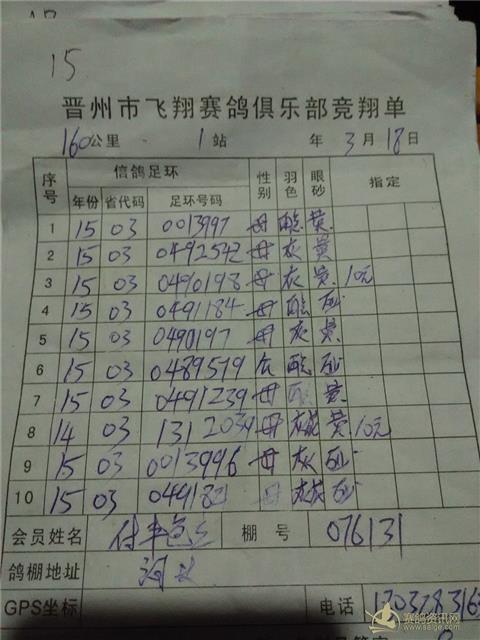 15
晋州市飞翔赛鸽俱乐部竞翔单
160公里 1站 年3月18日
序号 信鸽足环 性别 羽色 眼砂 指定
年份 省代码 足环号码
1 15 03 0013997 母 黄
2 15 03 0492542 母 灰 黄
3 15 03 0490198 母 灰 黄 10元
4 15 03 0491184 母 砂
5 15 03 0490197 母 灰 黄
6 15 03 0489579 砂
7 15 03 0491239 母 黄
8 14 03 1312039 母 黄 10元
9 15 03 0013996 母 灰 砂
10 15 03 母 砂
会员姓名 棚号 076131
鸽棚地址 河
GPS坐标 电话
赛鸽资讯网
www.saige.com